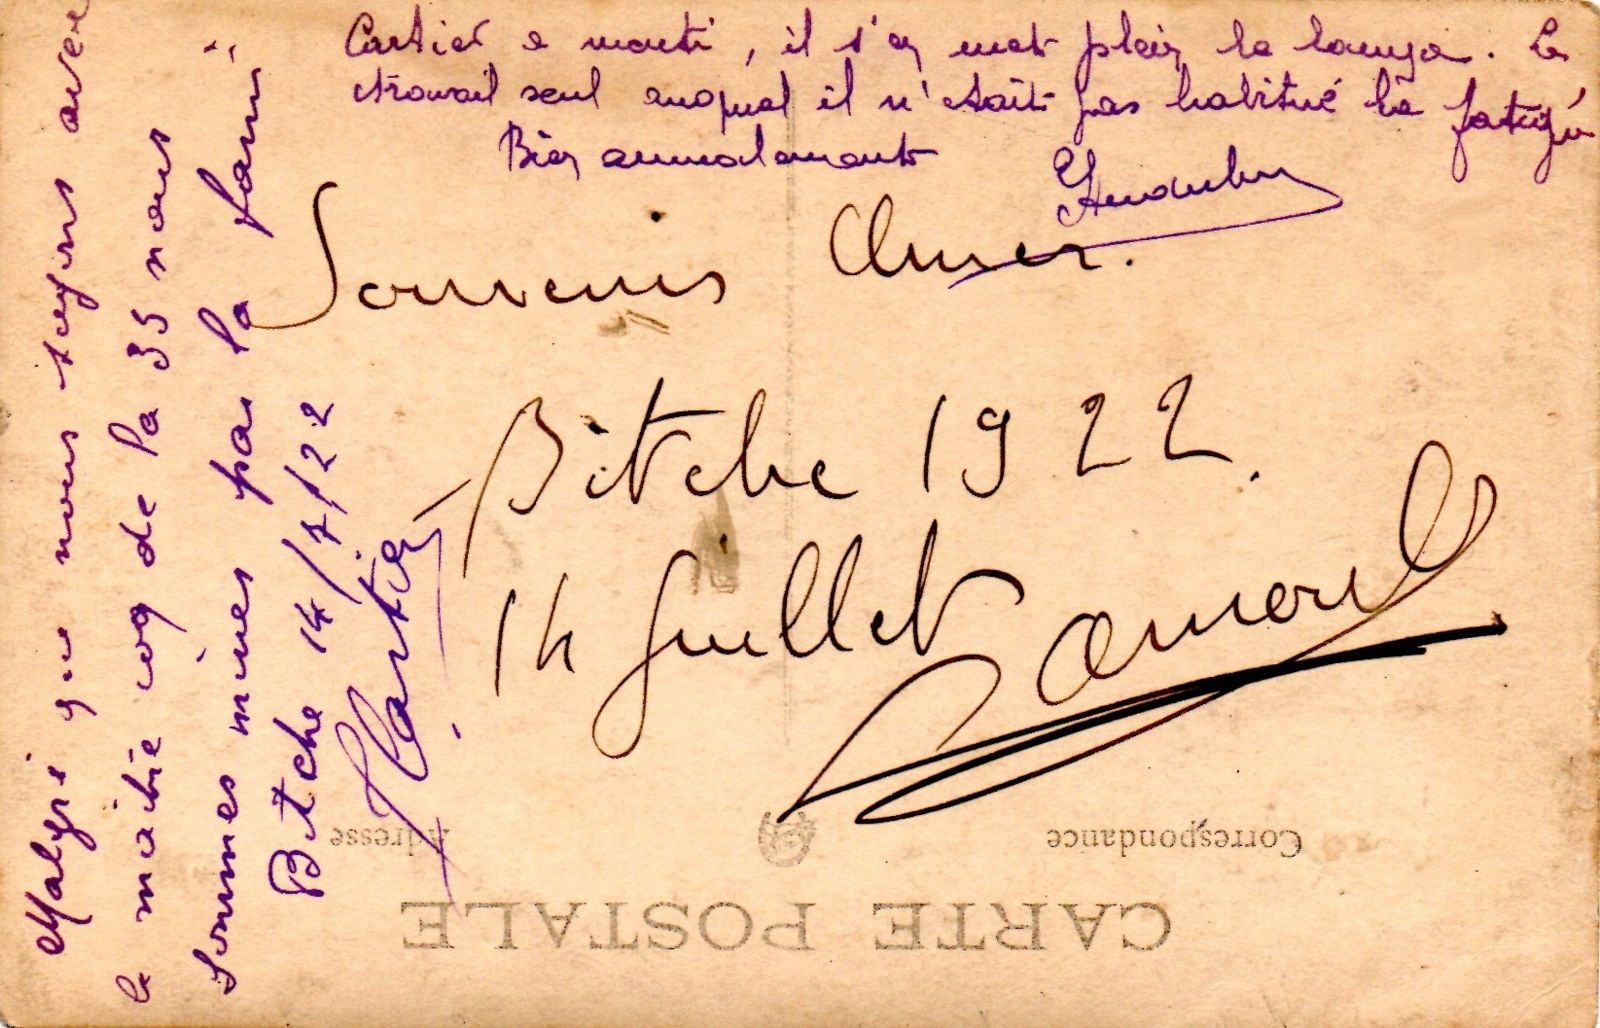 Cartier a menti, il s'en met plein la lampe. Le
travail seul auquel il n'était pas habitué l'a fatigué
Bien amicalement
Souvenir Amer.
Bitche 1922.
14 Juillet
Malgré que nous soyons avec
le maître coq de la 35 nous
sommes minés par la faim
Bitche 14/7/22
Cartier
Adresse
Correspondance
CARTE POSTALE